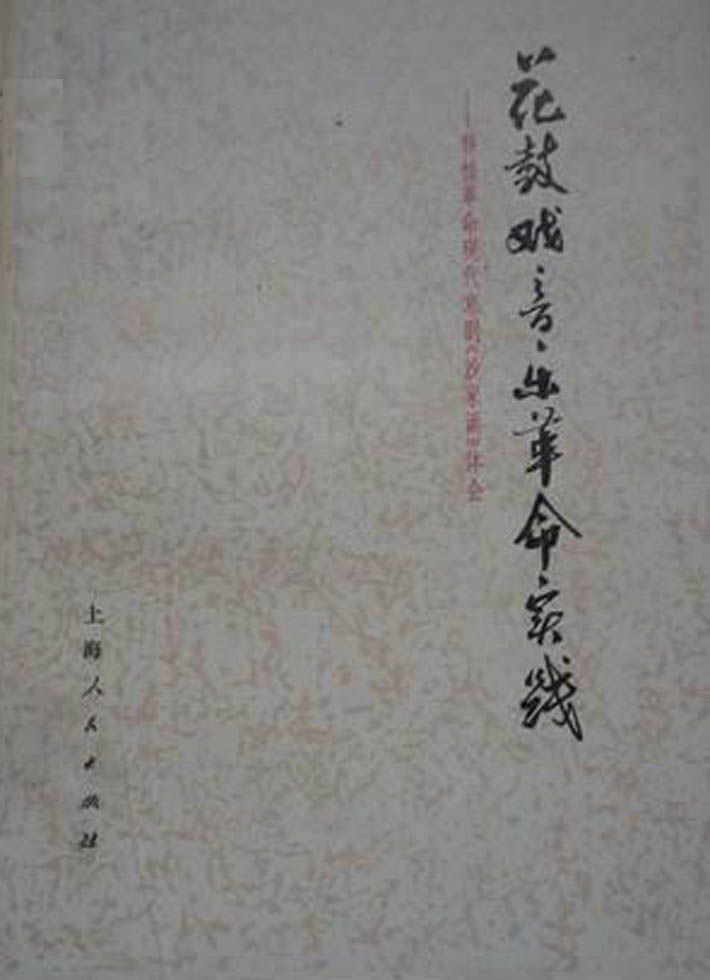 花鼓戏音乐革命实践
——移植革命现代京剧《沙家浜》体会
上海人民出版社